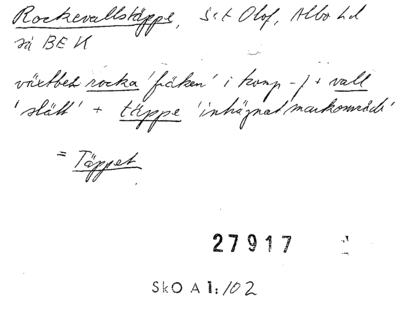 Rockevallstäppe, S:t Olof, Albo hd
så BEK
växtbet rocka 'fräken' i komp -j + vall
'slätt' + täppe 'inhägnat markområde'
= Täppet
27917
Sk O A 1:102